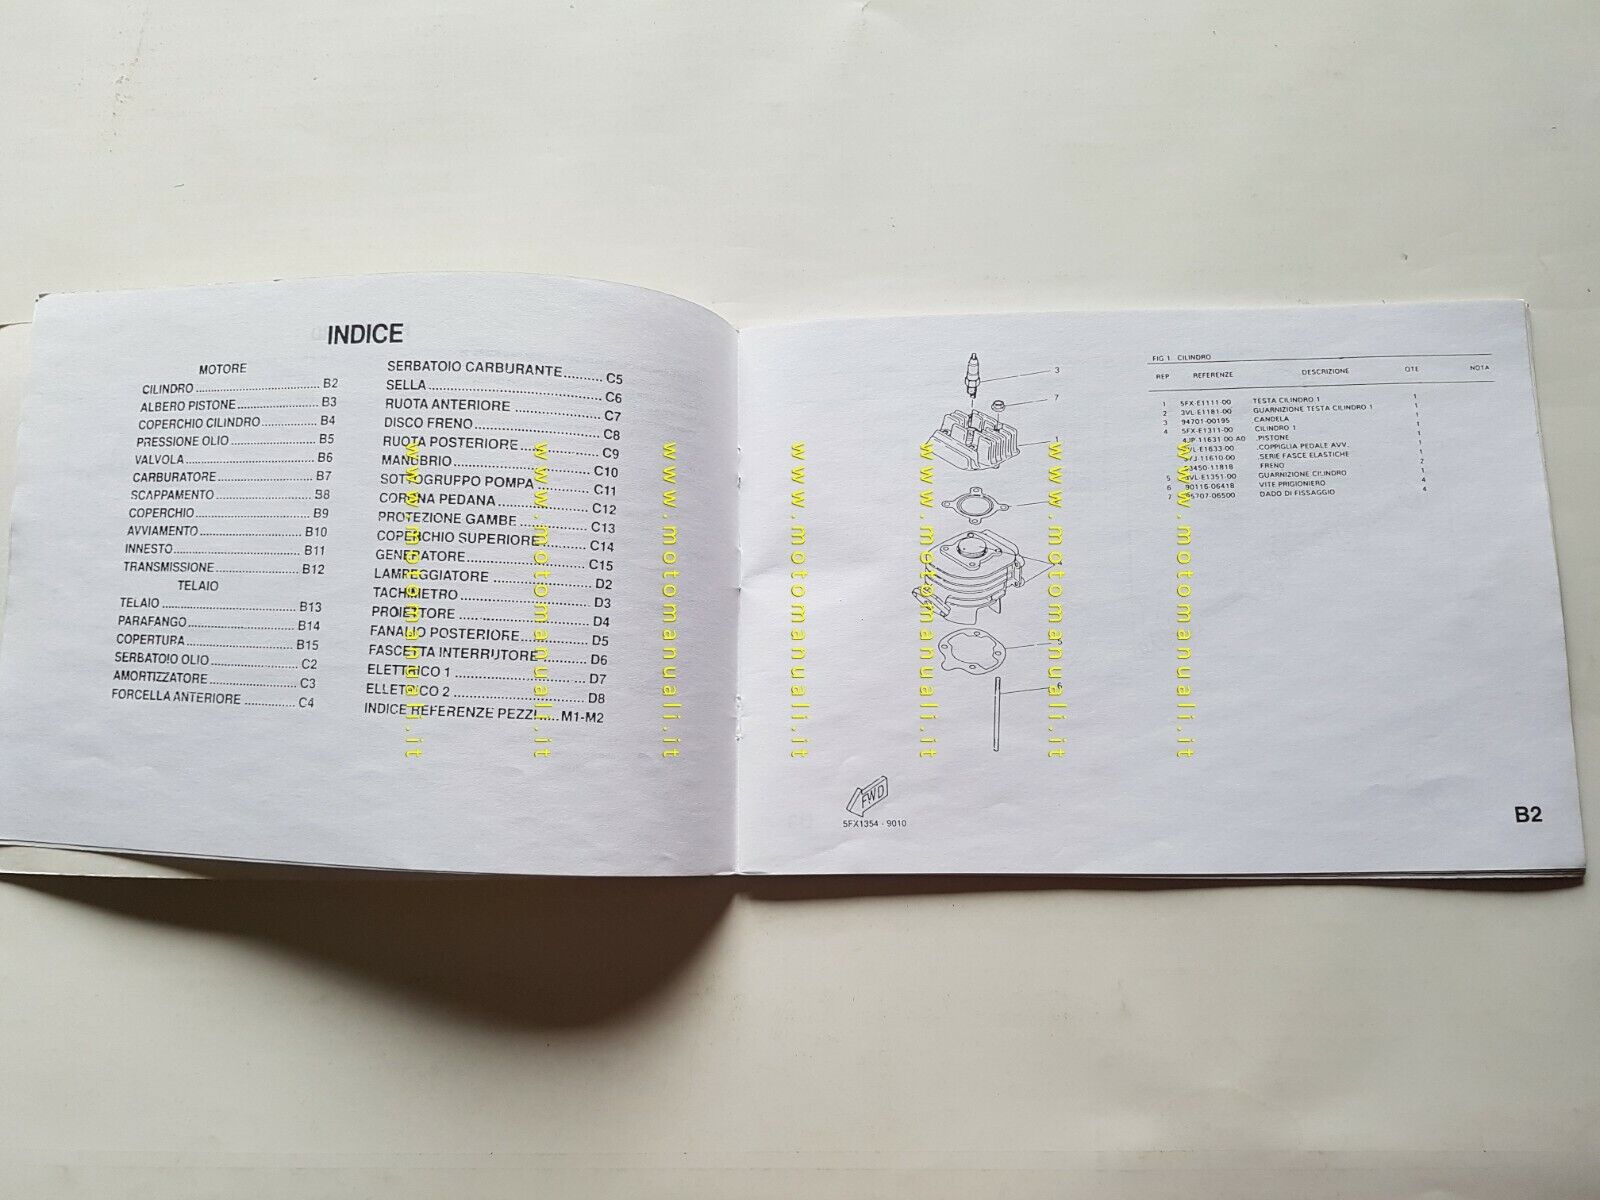 INDICE
MOTORE
CILINDRO ........ B2
ALBERO PISTONE ........ B3
COPERCHIO CILINDRO ........ B4
PRESSIONE OLIO ........ B5
VALVOLA ........ B6
CARBURATORE ........ B7
SCAPPAMENTO ........ B8
COPERCHIO ........ B9
AVVIAMENTO ........ B10
INNESTO ........ B11
TRASMISSIONE ........ B12
TELAIO
TELAIO ........ B13
PARAFANGO ........ B14
COPERTURA ........ B15
SERBATOIO OLIO ........ C2
AMORTIZZATORE ........ C3
FORCELLA ANTERIORE ........ C4
SERBATOIO CARBURANTE ........ C5
SELLA ........ C6
RUOTA ANTERIORE ........ C7
DISCO FRENO ........ C8
RUOTA POSTERIORE ........ C9
MANUBRIO ........ C10
SOTTOGRUPPO POMPA ........ C11
CORONA PEDANA ........ C12
PROTEZIONE GAMBE ........ C13
COPERCHIO SUPERIORE ........ C14
GENERATORE ........ C15
LAMPEGGIATORE ........ D2
TACHIMETRO ........ D3
PROIETTORE ........ D4
FANALIO POSTERIORE ........ D5
FASCETTA INTERRUTORE ........ D6
ELETTRICO 1 ........ D7
ELLETRICO 2 ........ D8
INDICE REFERENZE PEZZI ..... M1-M2
www.motomanuali.it
www.motomanuali.it
www.motomanuali.it
www.motomanuali.it
www.motomanuali.it
www.motomanuali.it
www.motomanuali.it
3
7
1
5
6
FWD
5FX1354 - 9010
FIG 1 CILINDRO
REP REFERENZE DESCRIZIONE QTE NOTA
1 5FX-E1111-00 TESTA CILINDRO 1 1
2 3VL-E1181-00 GUARNIZIONE TESTA CILINDRO 1 1
3 94701-00195 CANDELA 1
4 5FX-E1311-00 CILINDRO 1 1
4JP-11631-00 A0 .PISTONE 1
.COPPIGLIA PEDALE AVV. 1
.SERIE FASCE ELASTICHE 1
.FRENO 2
5 3VL-E1351-00 GUARNIZIONE CILINDRO 1
6 90116-06418 VITE PRIGIONIERO 4
7 95707-06500 DADO DI FISSAGGIO 4
B2